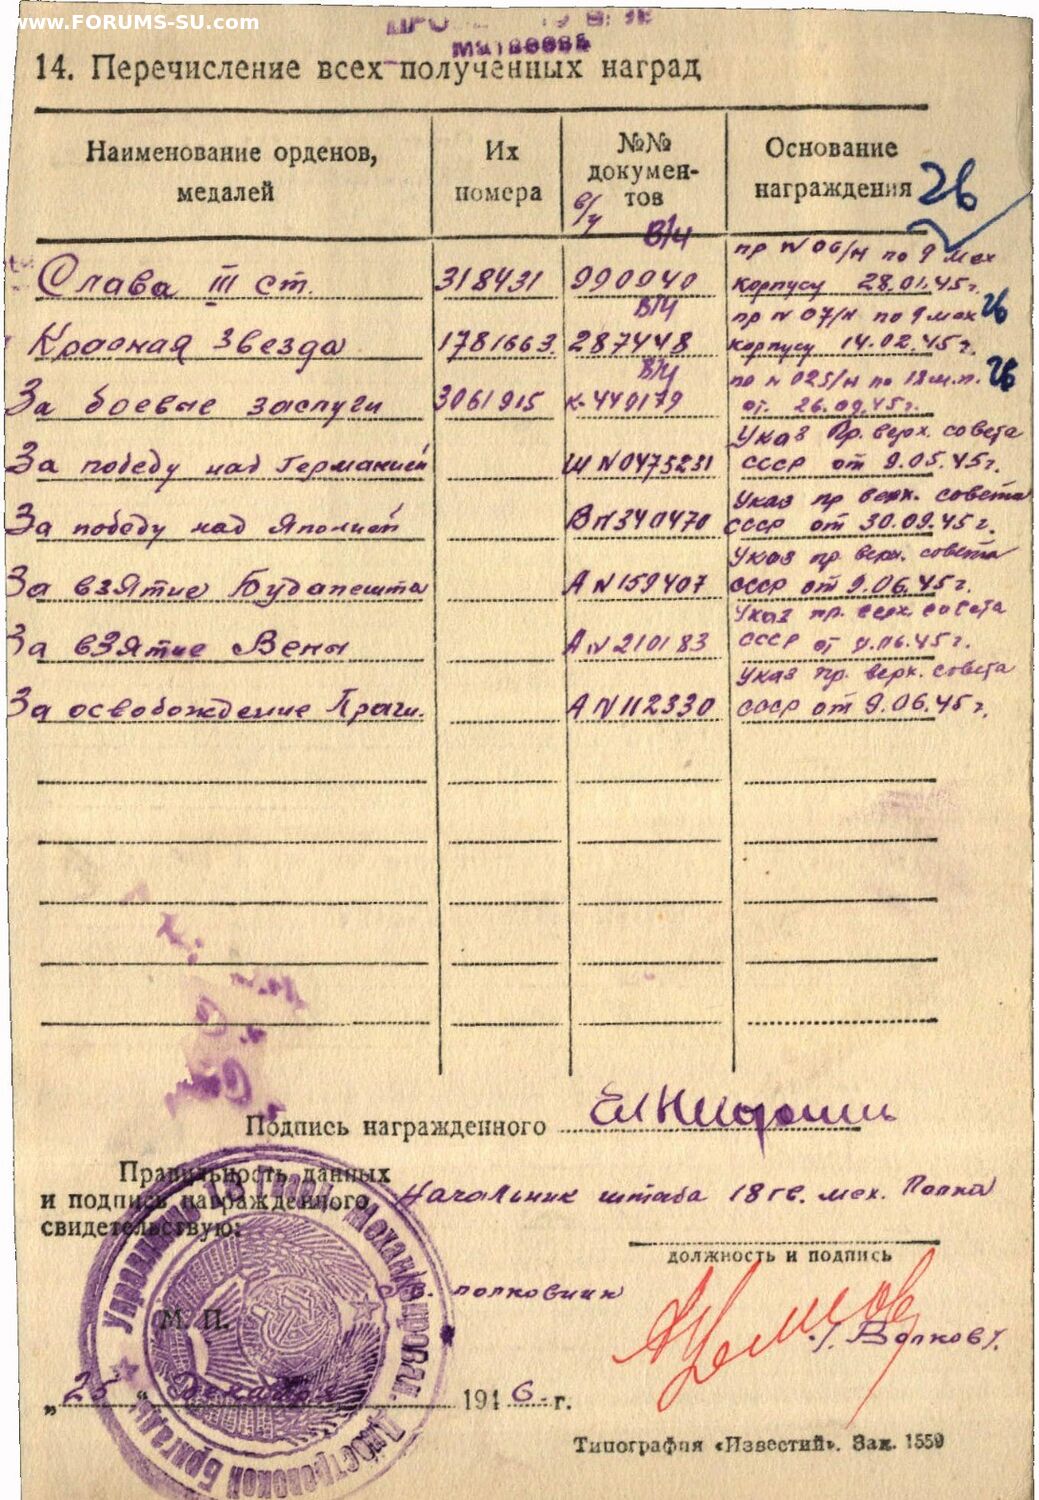 www.FORUMS-SU.com
Матвеева
14. Перечисление всех полученных наград
Наименование орденов, медалей
Их номера
№№ документов
в/ч
Основание награждения
26
Слава III ст. 318431 в/ч 990940 пр N 06/н по 9 мех корпусу 28.01.45г.
Красная Звезда 1781663. в/ч 287448 пр N 07/н по 9 мех корпусу 14.02.45г. 26
За боевые заслуги 3061915 в/ч к-440179 по N 025/н по 18 м.п. от. 26.09.45г. 26
За победу над Германией Ш N 0475231 Указ Пр. верх. совета СССР от 9.05.45г.
За победу над Японией В N 340470 Указ пр верх. совета СССР от 30.09.45г.
За взятие Будапешта А N 159407 Указ пр верх. совета СССР от 9.06.45г.
За взятие Вены А N 210183 Указ пр. верх. совета СССР от 9.06.45г.
За освобождение Праги. А N 112330 Указ пр. верх. совета СССР от 9.06.45г.
Подпись награжденного
Правильность данных
и подпись награжденного
свидетельствую:
Начальник штаба 18 гв. мех. Полка
должность и подпись
гв. полковник
М. П.
/Волков/.
„25" декабря 1946 г.
Управление 18 Гвард. Механизирован. Днестровской Бригады
Типография «Известий». Зак. 1559